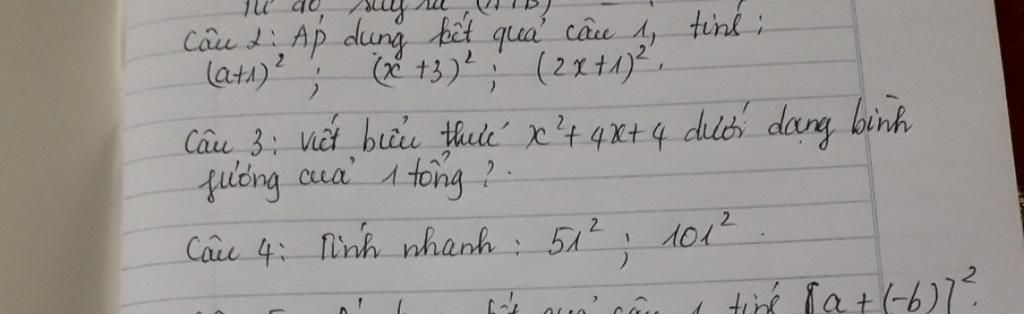 Từ đó suy ra (A+B)
Câu 2: Áp dụng kết quả câu 1, tính:
(a+1)² ; (x+3)² ; (2x+1)².
Câu 3: Viết biểu thức x²+4x+4 dưới dạng bình
phương của 1 tổng?.
Câu 4: Tính nhanh: 51² ; 101².
kết quả câu 1 tính [a+(-b)]².